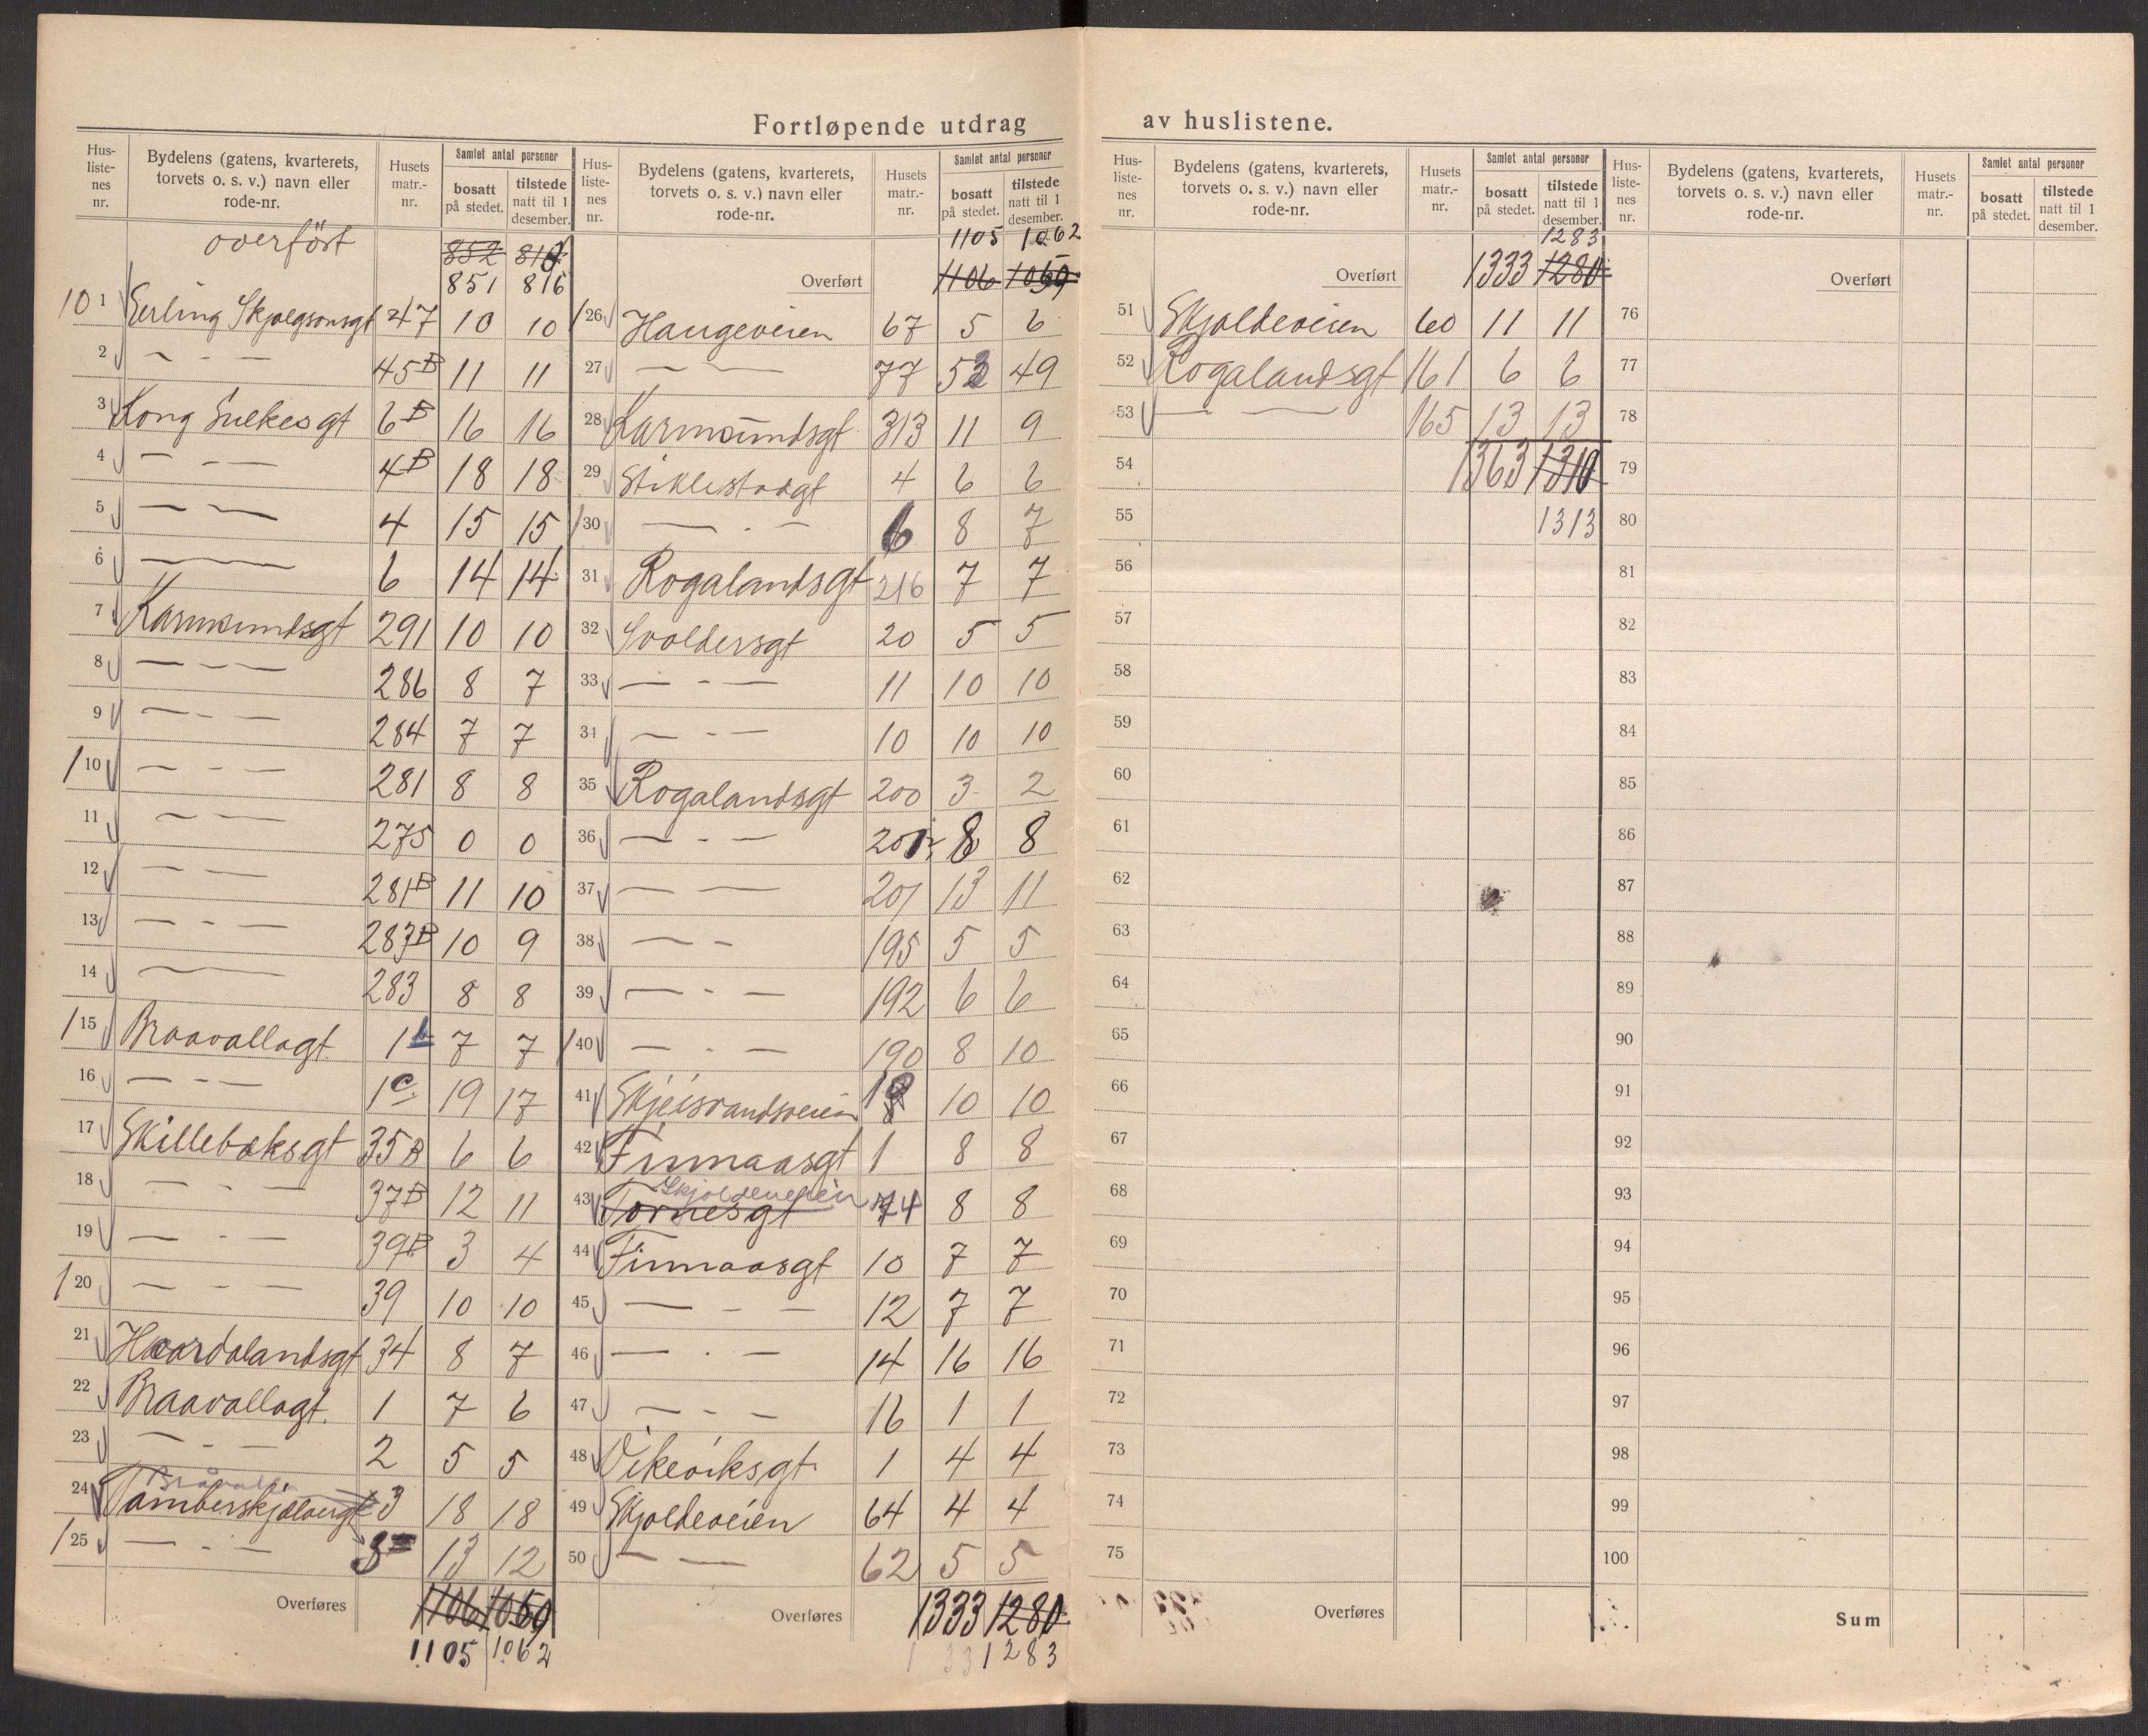 Fortløpende utdrag av huslistene.
Hus-liste-nes nr. | Bydelens (gatens, kvarterets, torvets o. s. v.) navn eller rode-nr. | Husets matr.-nr. | Samlet antal personer | bosatt på stedet. | tilstede natt til 1 desember.
overført 852
851 816
10 1 Erling Skjalgsonsgt 47 10 10
2 — - — 45B 11 11
3 Kong Sulkesgt 6B 16 16
4 — - — 4B 18 18
5 — — 4 15 15
6 — — 6 14 14
7 Karmsundsgt 291 10 10
8 — - — 286 8 7
9 — - — 284 7 7
/10 — - — 281 8 8
11 — — 275 0 0
12 — — 281B 11 10
13 — - — 283B 10 9
14 — — 283 8 8
/15 Braavallagt 1b 7 7
16 — - — 1c 19 17
17 Skillebæksgt 35B 6 6
18 — - — 37B 12 11
19 — - — 39B 3 4
/20 — - — 39 10 10
21 Haardalandsgt 34 8 7
22 Braavallagt. 1 7 6
23 — - — 2 5 5
24 Tamberskjelvergt 3 18 18
/25 — - — 3 13 12
Overføres 1106
1105 1062
Hus-liste-nes nr. | Bydelens (gatens, kvarterets, torvets o. s. v.) navn eller rode-nr. | Husets matr.-nr. | Samlet antal personer | bosatt på stedet. | tilstede natt til 1 desember.
1105 1062
Overført 1106
/26 Haugeveien 67 5 6
27 — — 77 49
28 Karmsundsgt 313 11 9
29 Stiklestadgt 4 6 6
/30 — - — 6 8 7
31 Rogalandsgt 216 7 7
32 Svoldersgt 20 5 5
33 — - — 11 10 10
34 — - — 10 10 10
35 Rogalandsgt 200 3 2
36 — - — 8 8
37 — — 201 13 11
38 — - 195 5 5
39 — - — 192 6 6
/40 — - — 190 8 10
41 Skjeisvandsveien 10 10
42 Finnaasgt 1 8 8
43 Tornesgt Skjoldeveien 74 8 8
44 Finnaasgt 10 7 7
45 — - — 12 7 7
46 — - — 14 16 16
47 — - — 16 1 1
48 Vikeviksgt. 1 4 4
49 Skjoldeveien 64 4 4
50 — — 62 5 5
Overføres 1333 1280
1283
Hus-liste-nes nr. | Bydelens (gatens, kvarterets, torvets o. s. v.) navn eller rode-nr. | Husets matr.-nr. | Samlet antal personer | bosatt på stedet. | tilstede natt til 1 desember.
1283
Overført 1333 1280
51 Skjoldeveien 60 11 11
52 Rogalandsgt 161 6 6
53 — — 165 13 13
54 1363 1310
55 1313
56
57
58
59
60
61
62
63
64
65
66
67
68
69
70
71
72
73
74
75
Overføres
Hus-liste-nes nr. | Bydelens (gatens, kvarterets, torvets o. s. v.) navn eller rode-nr. | Husets matr.-nr. | Samlet antal personer | bosatt på stedet. | tilstede natt til 1 desember.
Overført
76
77
78
79
80
81
82
83
84
85
86
87
88
89
90
91
92
93
94
95
96
97
98
99
100
Sum